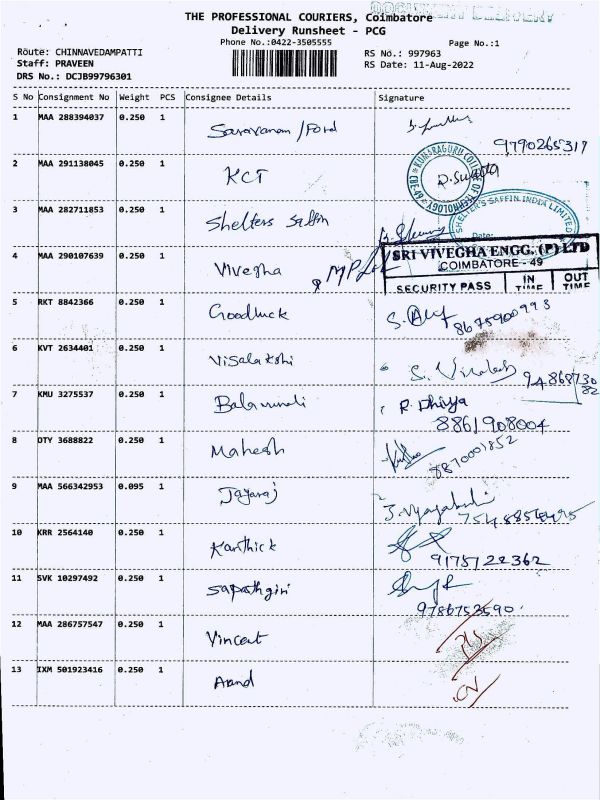 THE PROFESSIONAL COURIERS, Coimbatore
Delivery Runsheet - PCG
Phone No.:0422-3505555
Page No.:1
Route: CHINNAVEDAMPATTI
RS No.: 997963
Staff: PRAVEEN
RS Date: 11-Aug-2022
DRS No.: DCJB99796301
S No Consignment No Weight PCS Consignee Details Signature
1 MAA 288394037 0.250 1 Saravanan /Ford
9790265317
2 MAA 291138045 0.250 1 KCT
KUMARAGURU COLLEGE OF TECHNOLOGY
3 MAA 282711853 0.250 1 Shelters Saffin
SHELTER'S SAFFIN INDIA LIMITED
Date:
4 MAA 290107639 0.250 1 Vivegha
SRI VIVEGHA ENGG. (P) LTD
COIMBATORE - 49
SECURITY PASS IN TIME OUT TIME
5 RKT 8842366 0.250 1 Goodluck
8675900998
6 KVT 2634401 0.250 1 Visalakshi
7 KMU 3275537 0.250 1 Balamurali R. Dhivya
8861908004
8 OTY 3688822 0.250 1 Mahesh
8870001852
9 MAA 566342953 0.095 1 Jayaraj
10 KRR 2564140 0.250 1 Karthick
9175122362
11 SVK 10297492 0.250 1 Sapathgiri
9786753590
12 MAA 286757547 0.250 1 Vincent
13 IXM 501923416 0.250 1 Anand